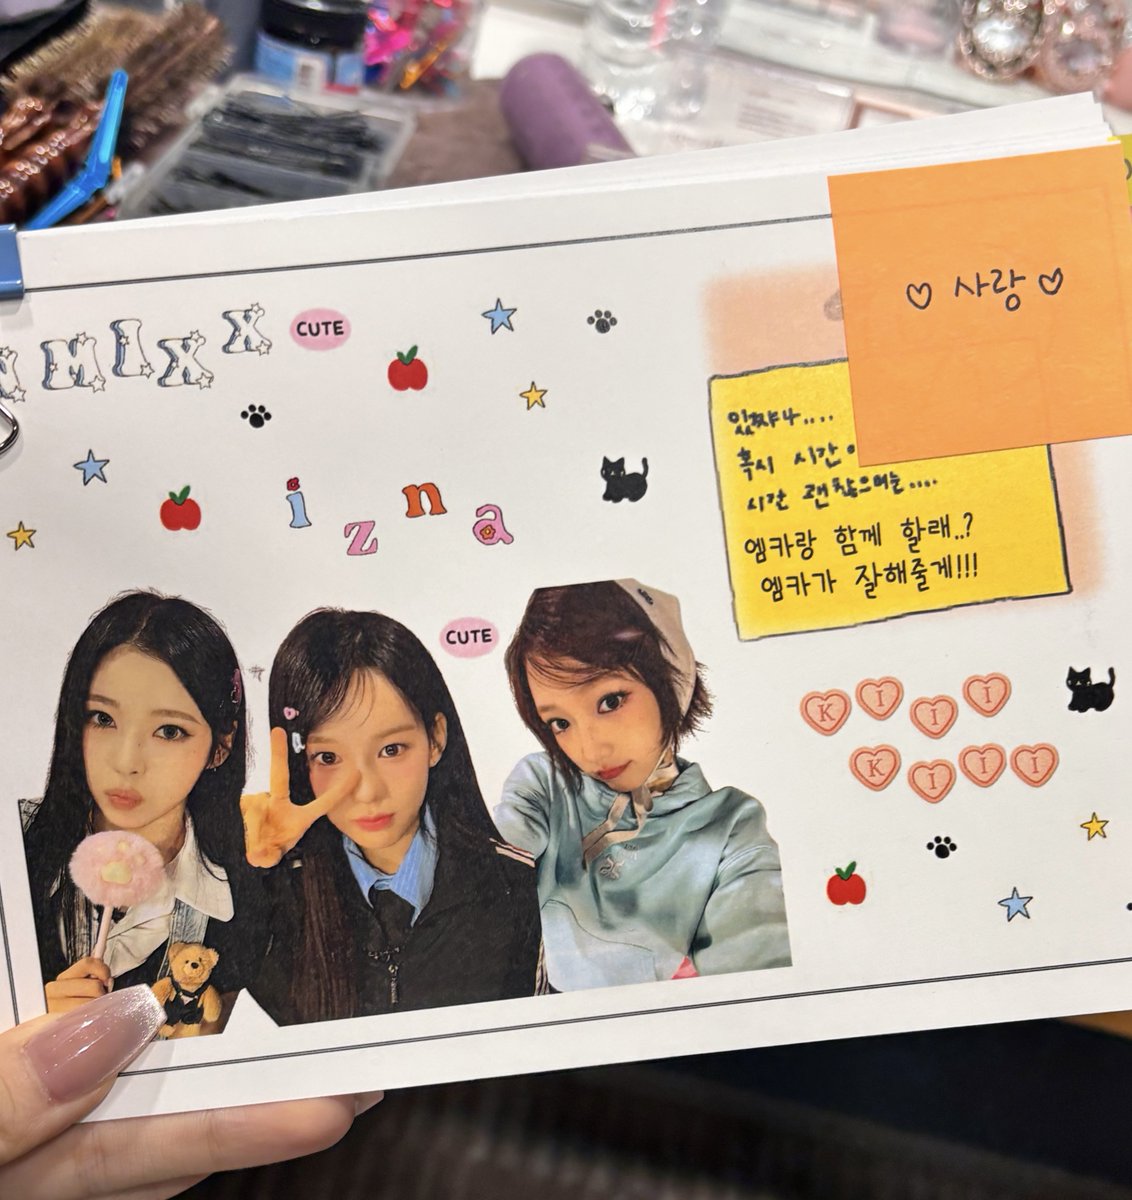 NMIXX
CUTE
izna
CUTE
♡ 사랑 ♡
있쨔나....
혹시 시간이
시간 괜찮으며는....
엠카랑 함께 할래..?
엠카가 잘해줄게!!!
KIII
KIII